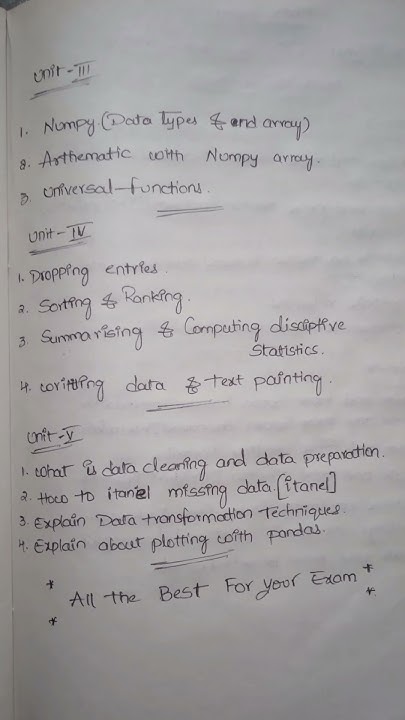 Unit-III
1. Numpy (Data Types & end array)
2. Arthematic with Numpy array.
3. Universal-functions.
Unit-IV
1. Dropping entries.
2. Sorting & Ranking.
3. Summarising & Computing disciptive
Statistics.
4. writting data & text painting.
Unit-V
1. What is data cleaning and data preparation.
2. How to itaniel missing data [itanel]
3. Explain Data transformation Techniques.
4. Explain about plotting with pandas.
* All the Best For your Exam *
* *